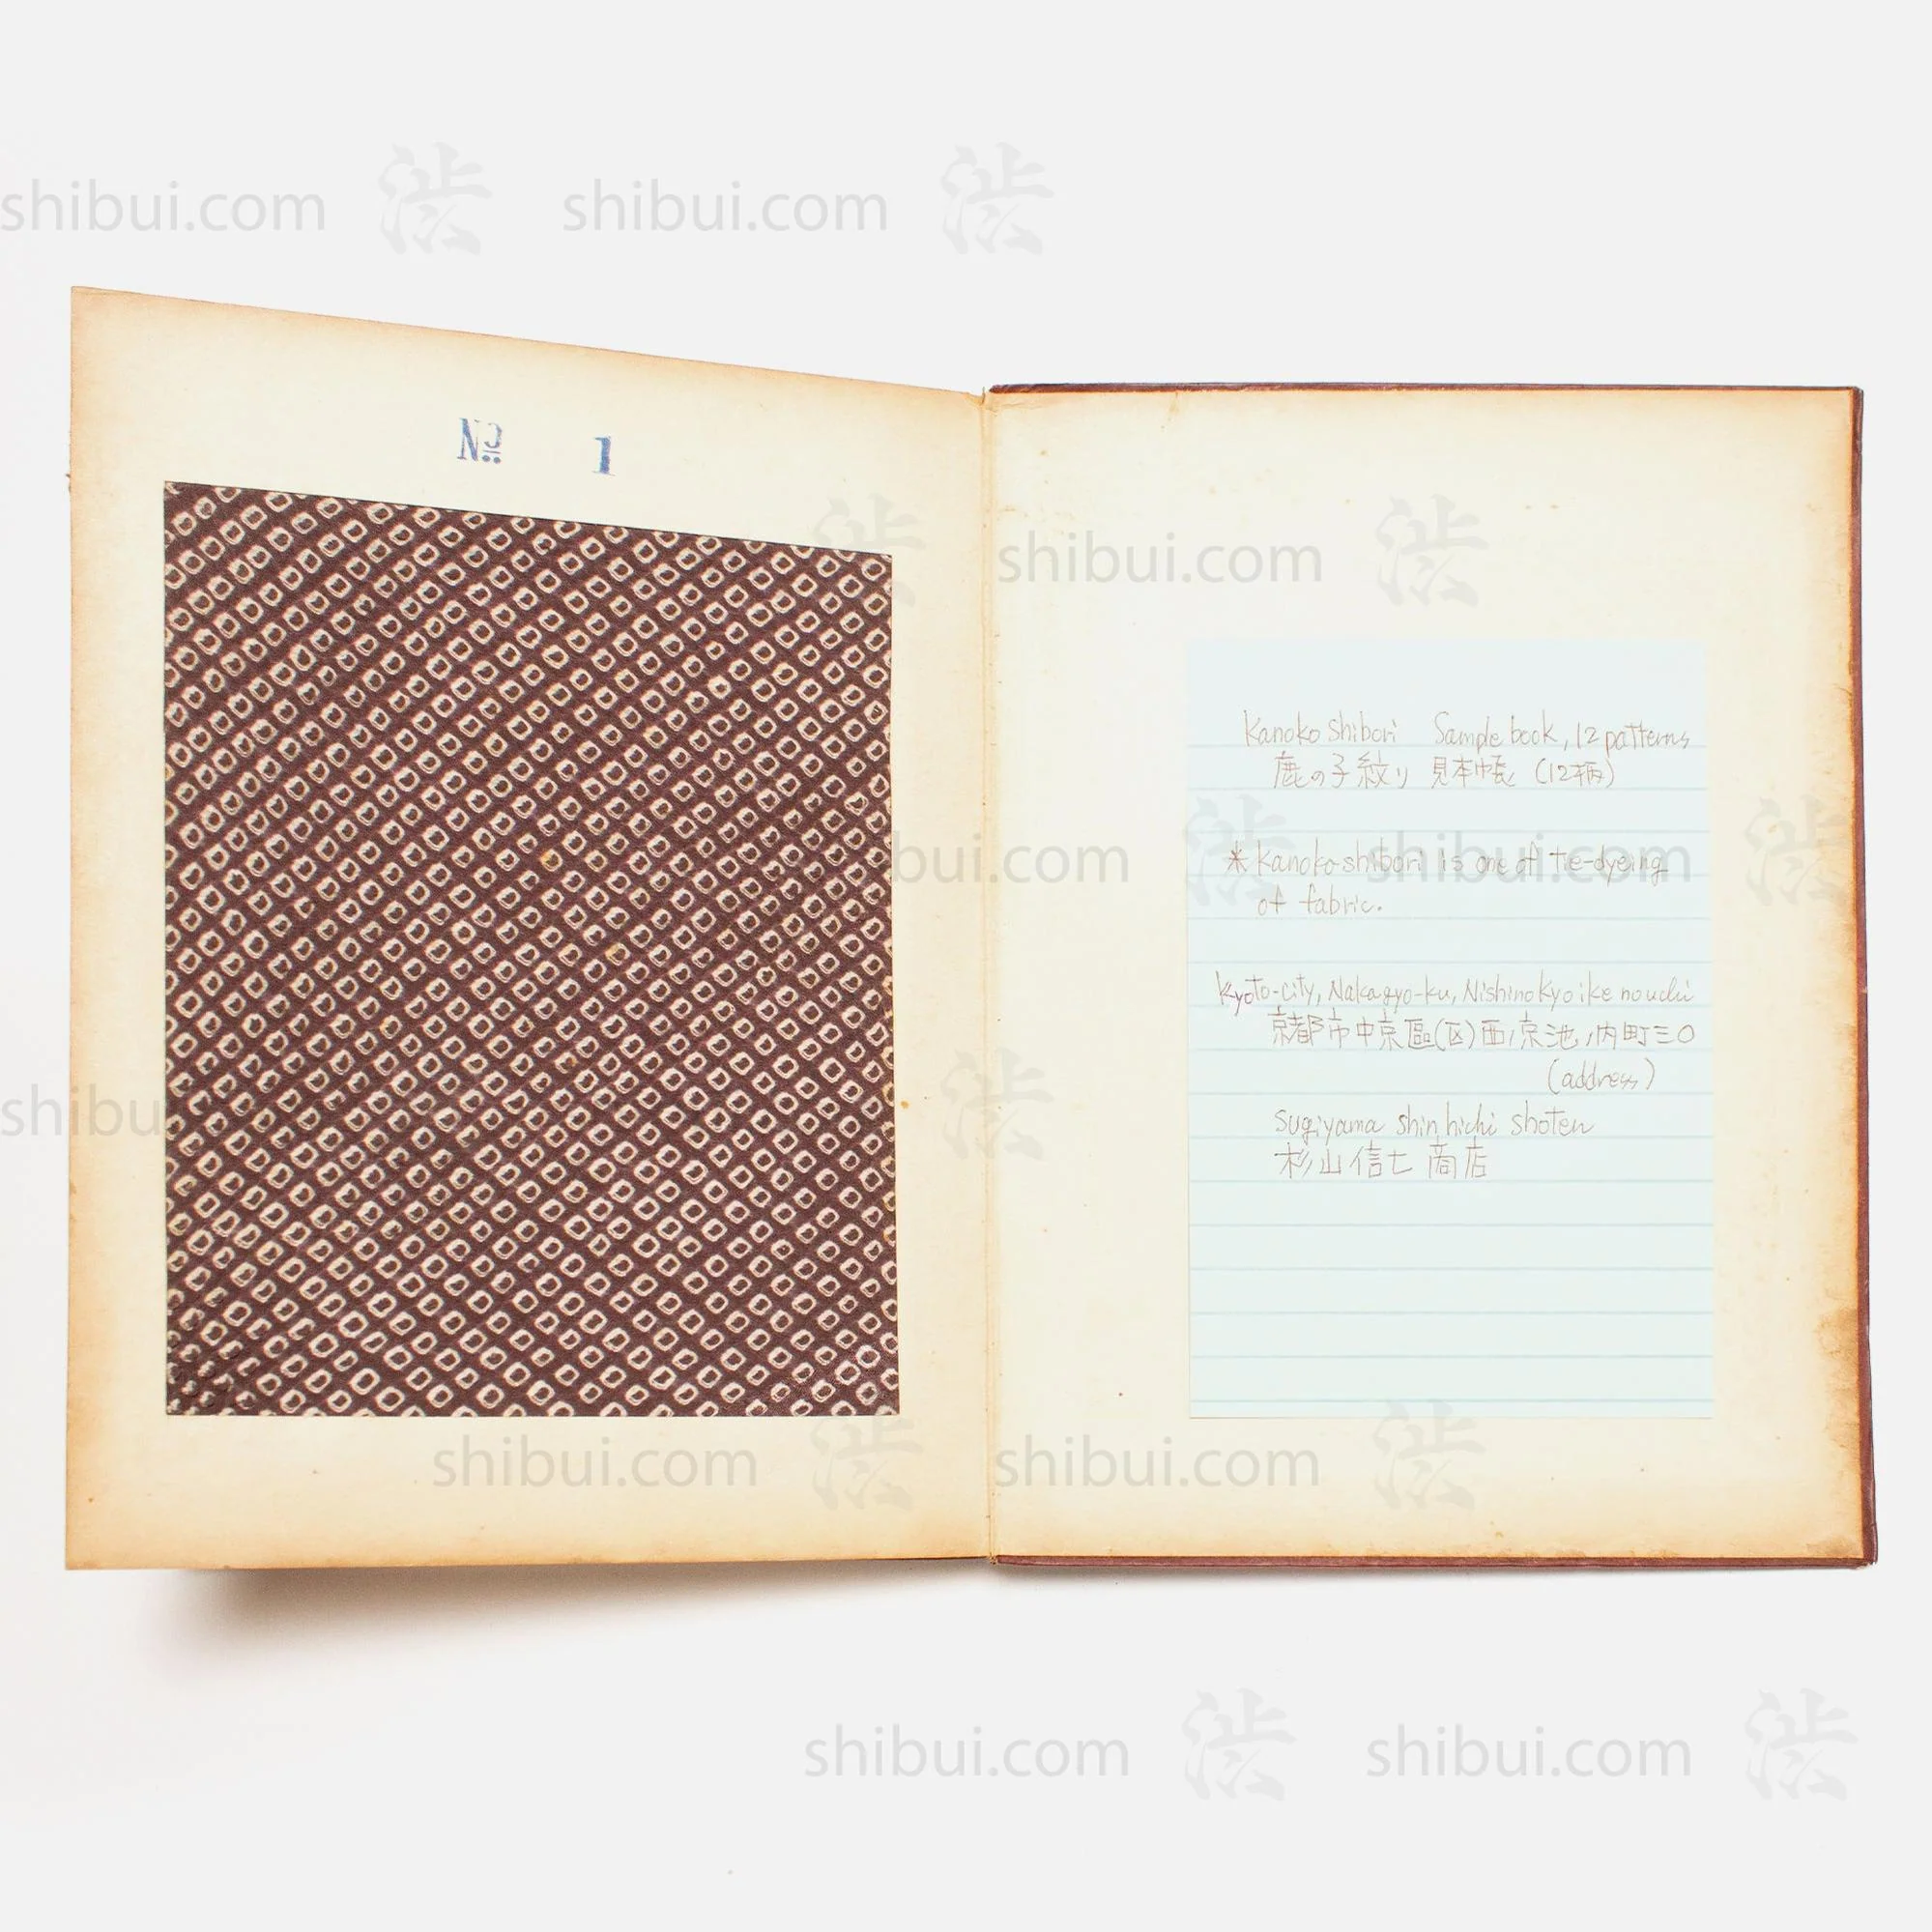 № 1
Kanoko Shibori Sample book, 12 patterns
鹿の子絞り 見本帳 (12柄)
* Kanoko-shibori is one of tie-dyeing
of fabric.
Kyoto-city, Nakagyo-ku, Nishinokyo ike nouchi
京都市中京區(区)西ノ京池ノ内町三〇
(address)
Sugiyama Shin hichi shoten
杉山信七 商店
shibui.com 渋 shibui.com 渋
渋 shibui.com 渋
bui.com 渋 shibui.com 渋
shibu 渋
shibui.com 渋 shibui.com 渋
shibui.com 渋 shibui.com 渋